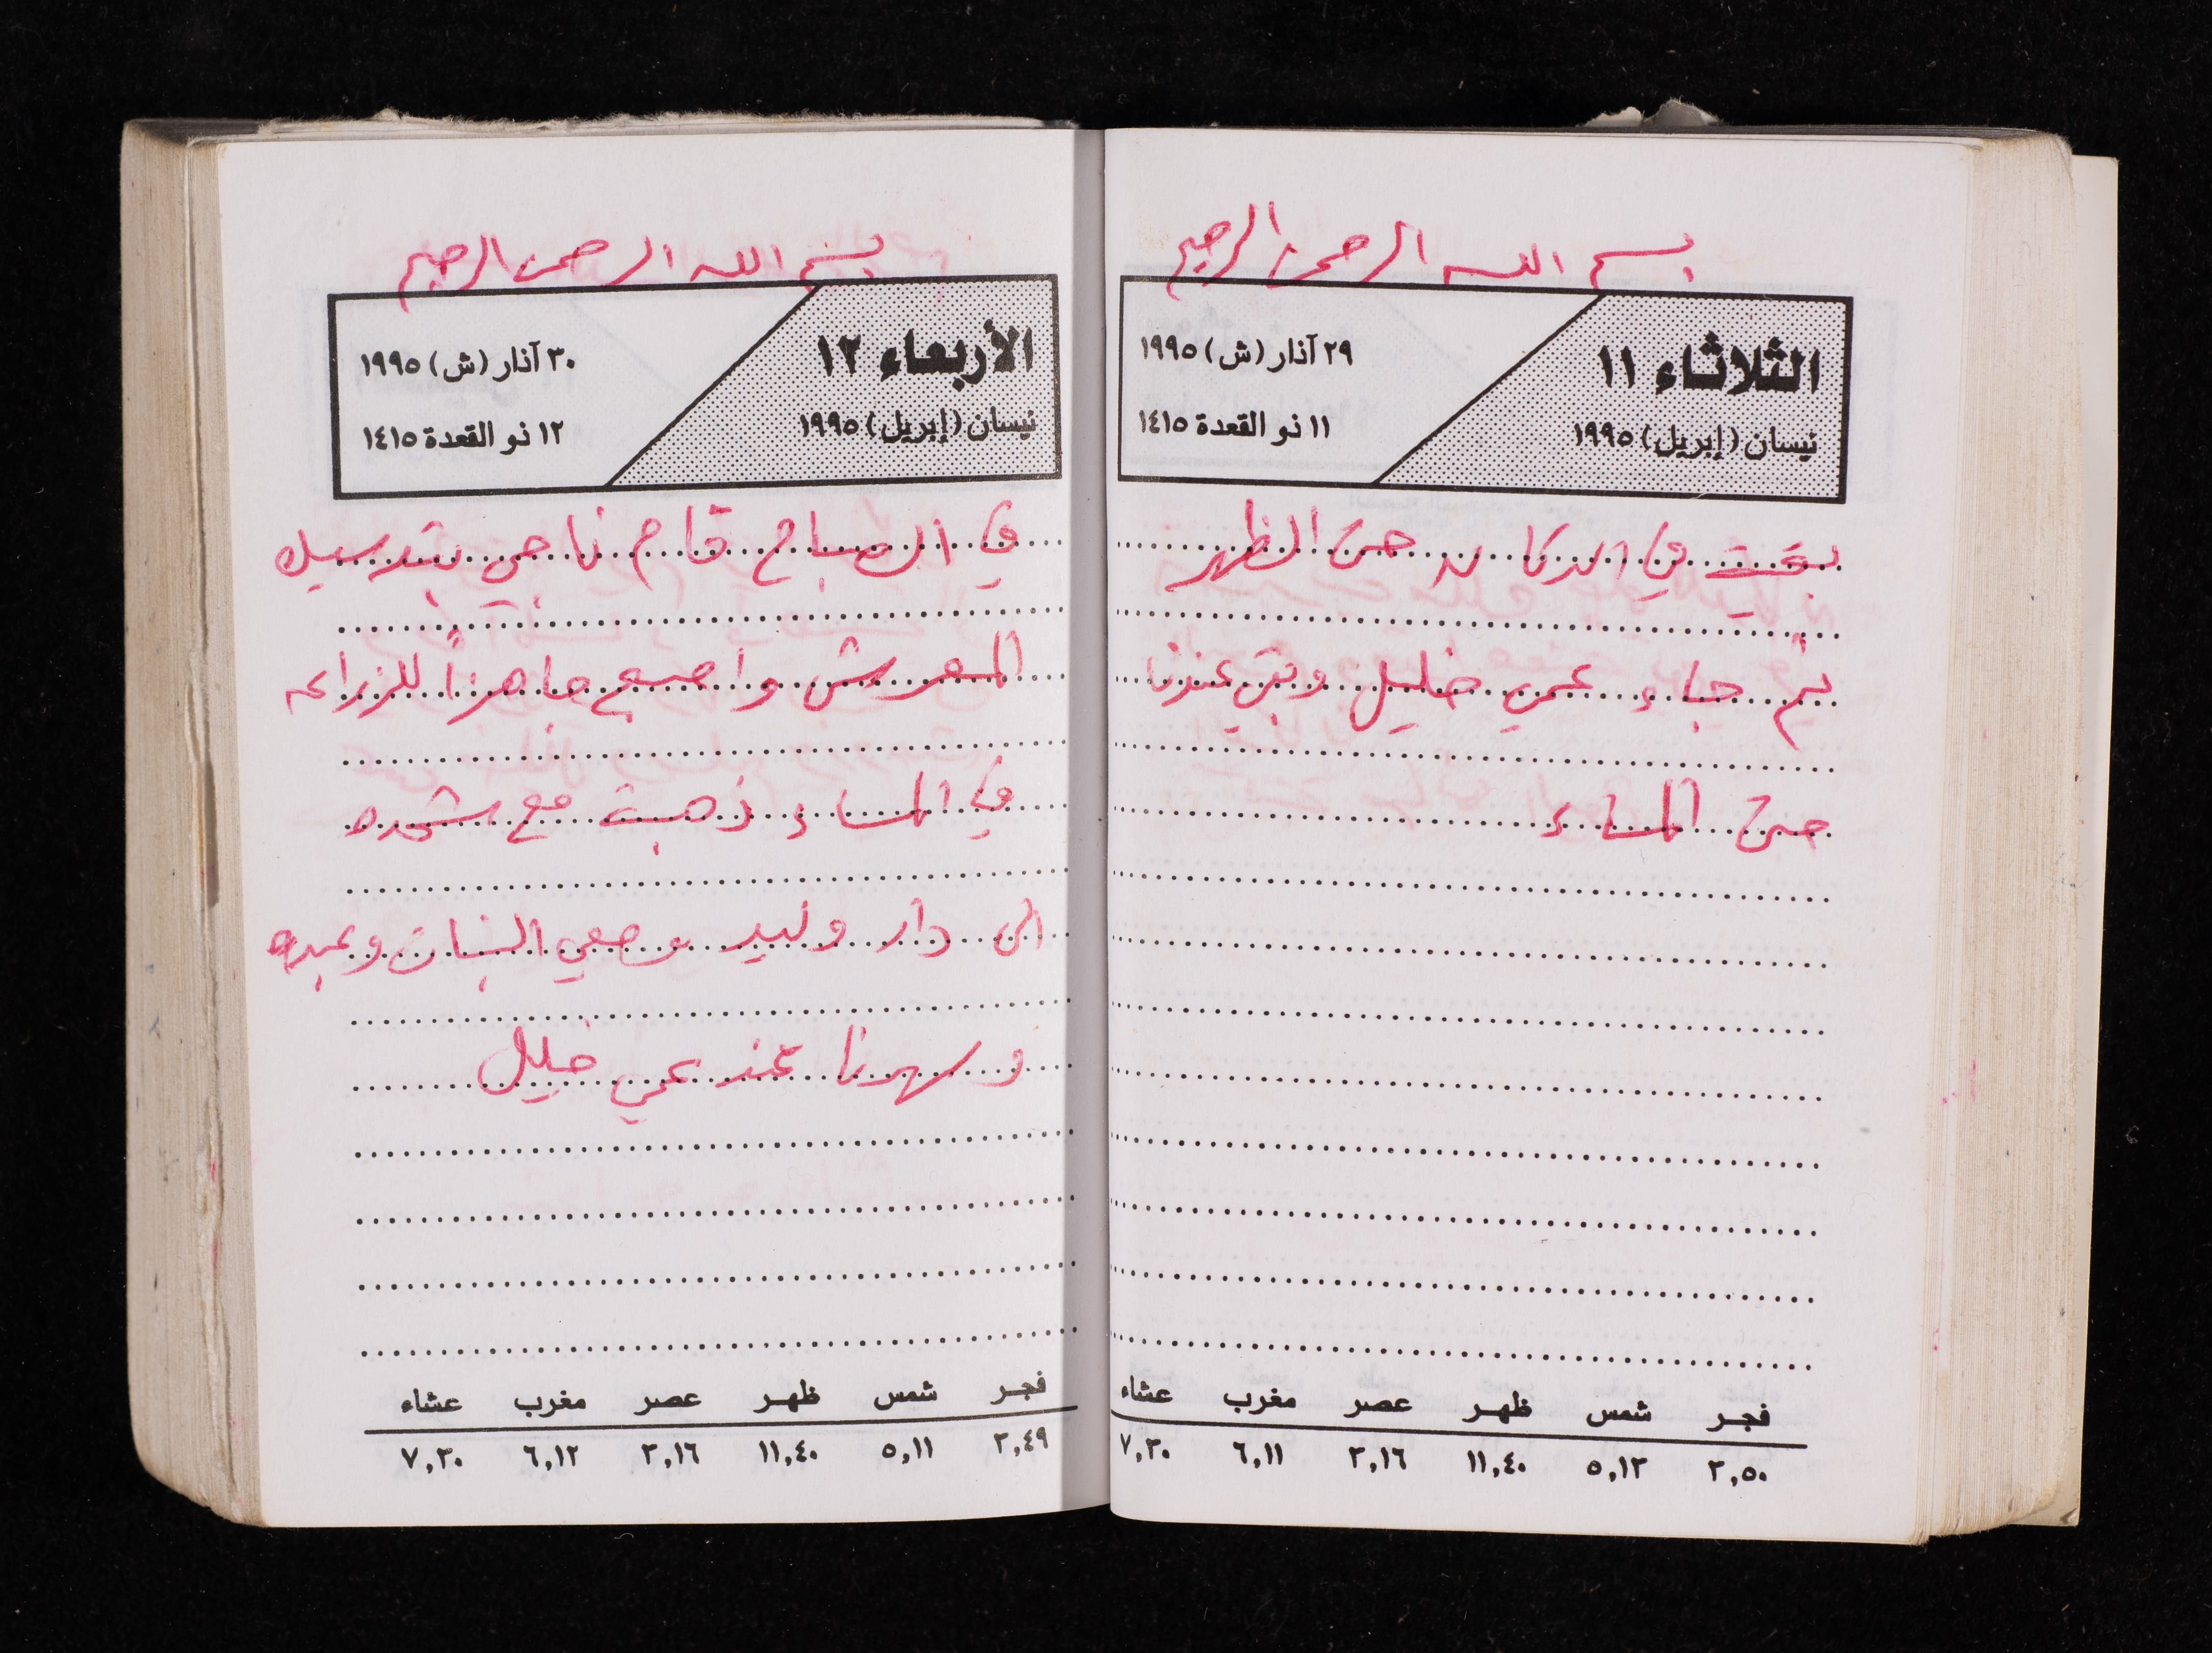 بسم الله الرحمن الرحيم
الثلاثاء ١١
نيسان (إبريل) ١٩٩٥
٢٩ آذار (ش) ١٩٩٥
١١ ذو القعدة ١٤١٥
بقيت في الدكان حتى الظهر
ثم جاء عمي خليل وبقي عندنا
حتى المساء
فجر شمس ظهر عصر مغرب عشاء
٣,٥٠ ٥,١٢ ١١,٤٠ ٣,١٦ ٦,١١ ٧,٣٠
بسم الله الرحمن الرحيم
الأربعاء ١٢
نيسان (إبريل) ١٩٩٥
٣٠ آذار (ش) ١٩٩٥
١٢ ذو القعدة ١٤١٥
في الصباح قام ناجي
المعرش واصبح جاهزاً للزراعه
في المساء ذهبت مع شحده
الى دار وليد وصفي البنات وعبده
وسهرنا عند عمي خليل
فجر شمس ظهر عصر مغرب عشاء
٣,٤٩ ٥,١١ ١١,٤٠ ٣,١٦ ٦,١٢ ٧,٣٠